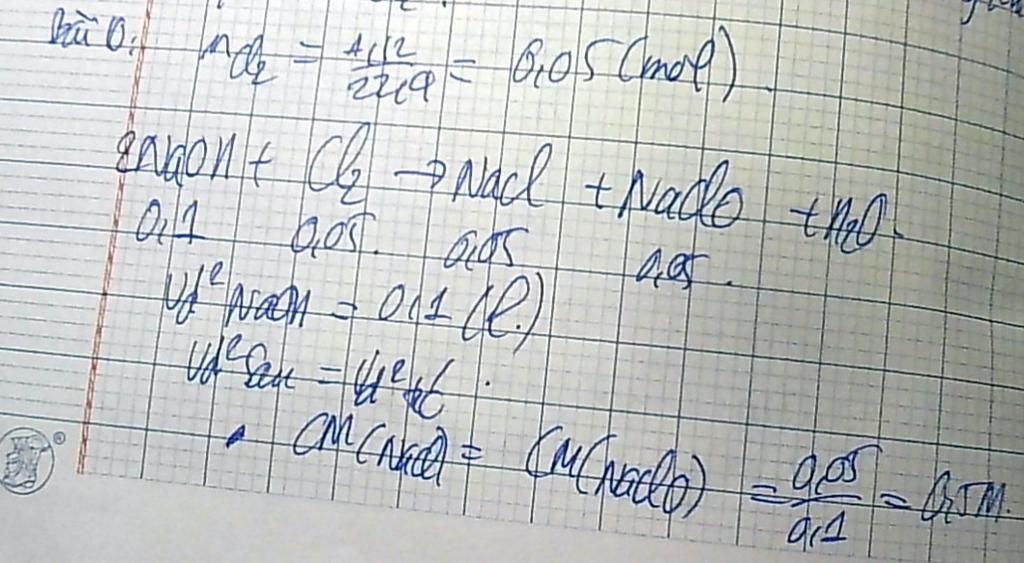 Bài 0. nCl₂ = 1,12/22,4 = 0,05 (mol)
2NaOH + Cl₂ → NaCl + NaClO + H₂O.
0,1 0,05. 0,05 0,05.
Vd² NaOH = 0,1 (l.)
Vd² sau = Vd² trc.
CM(NaCl) = CM(NaClO) = 0,05/0,1 = 0,5M.